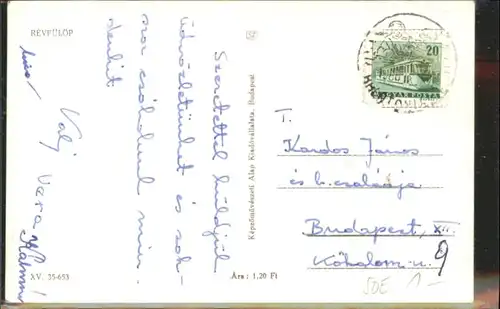 RÉVFÜLÖP
Szeretettel küldjük
üdvözletünket és sok-
szor csókolunk min-
denkit
Vali
Vera
Kálmán
XV. 35-653
Képzőművészeti Alap Kiadóvállalata, Budapest
Ára: 1,20 Ft
20
MAGYAR POSTA
T.
Kardos János
és b. családja
Budapest, XII.
Kőhalom-u.
9
1-